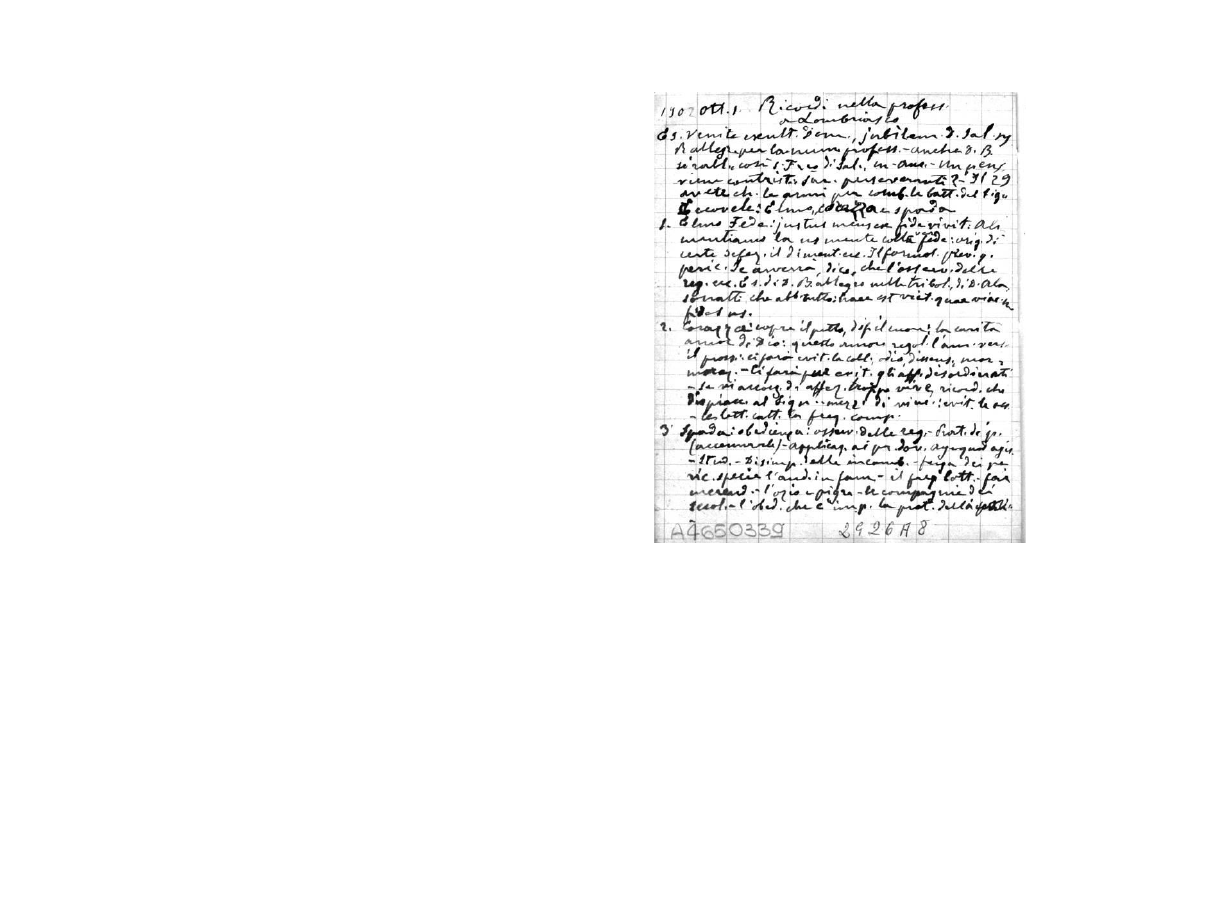 1902 Ott. 1. Ricordi nella profess.
a Lombriasco
Es. Venite exult. Dom., jubilem. D. Sal. ns
Rallegr. per la num. profess. - anche D. B.
si rall. così S. Fr. di Sal., un pens.
viene contrist. Sar. perseveranti? - Il 29
avete ch. le armi per comb. le batt. del Sign
Eccovele: Elmo, corazza e spada
1. Elmo Fede: justus meus ex fide vivit. Ali
mentiamo la ns mente colla fede: orig. di
certe defez. il diment. ecc. Il formol. prev. q.
peric. Se avverrà, dice, che l'osserv. delle
reg. ecc. Es. di D. B. allegro nelle tribol., di D. Ala
sonatti che abb. tutto: haec est vict. quae vincit
fides ns.
2. Corazza: copre il petto, dif. il cuore: la carità
amor di Dio: questo amore regol. l'am. vers.
il pross. ci farà evit. la coll. odio, dissens., mor
moraz. - Ci farà pur evit. gli aff. disordinati
- se vi accorg. di affez. troppo vive, ricord. che
dispiacc. al Sign. - mezzi di vinc.: evit. le occ.
- le lett. catt. la freq. comp.
3 Spada: obedienza: osserv. delle reg. - Prat. di p.
(accennarle) - applicaz. ai pr. dov. age quod agis
- Stud. - Disimp. delle incomb. - fuga dei pe
ric. specie l'and. in fam. - il freq. bott. - far
merend. - l'ozio e pigra - le compagnie dei
secol. - l'obed. che c'imp. la prat. della
A4650339 2926A8